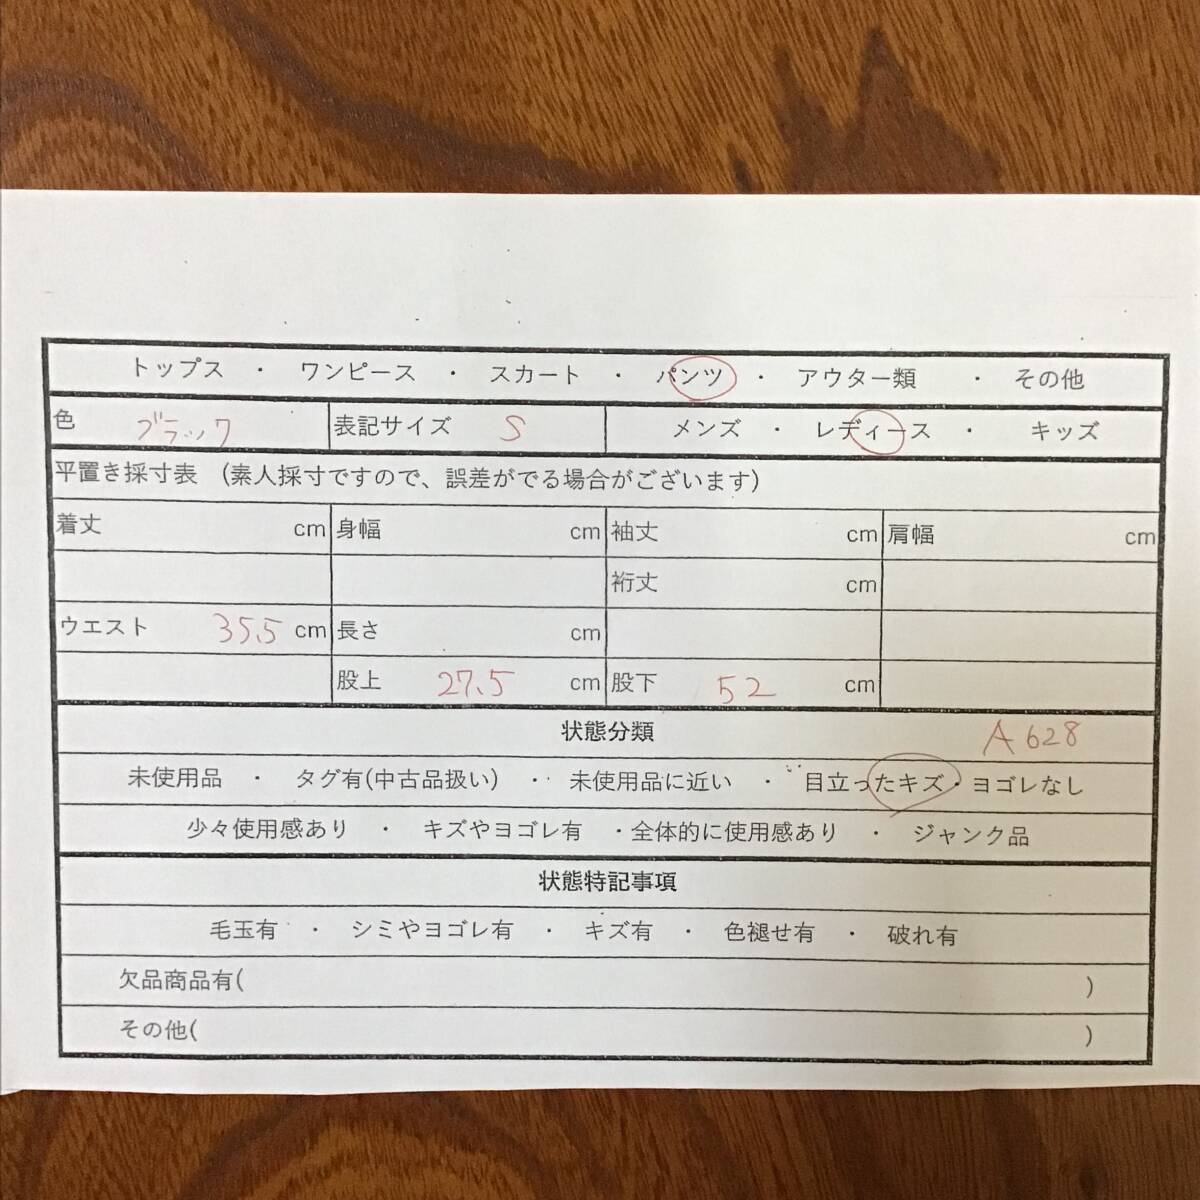 トップス ・ ワンピース ・ スカート ・ パンツ ・ アウター類 ・ その他
色 ブラック 表記サイズ S メンズ ・ レディース ・ キッズ
平置き採寸表 (素人採寸ですので、誤差がでる場合がございます)
着丈 cm 身幅 cm 袖丈 cm 肩幅 cm
裄丈 cm
ウエスト 35.5 cm 長さ cm
股上 27.5 cm 股下 52 cm
状態分類 A628
未使用品 ・ タグ有(中古品扱い) ・ 未使用品に近い ・ 目立ったキズ・ヨゴレなし
少々使用感あり ・ キズやヨゴレ有 ・全体的に使用感あり ・ ジャンク品
状態特記事項
毛玉有 ・ シミやヨゴレ有 ・ キズ有 ・ 色褪せ有 ・ 破れ有
欠品商品有( )
その他( )